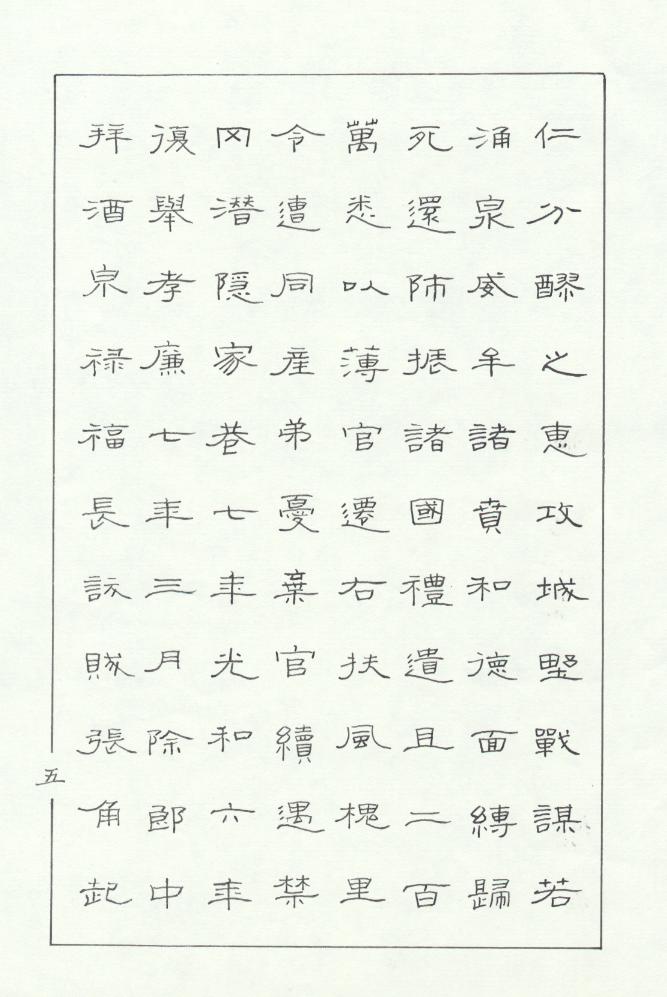 仁分醪之恵攻城野戰謀若
涌泉威牟諸賁和德面縛歸
死還師振諸國禮遺且二百
萬悉以薄官遷右扶風槐里
令遭同産弟憂棄官續遇禁
冈潜隱家巷七年光和六年
復舉孝廉七年三月除郎中
拜酒泉禄福長訞賊張角起
五